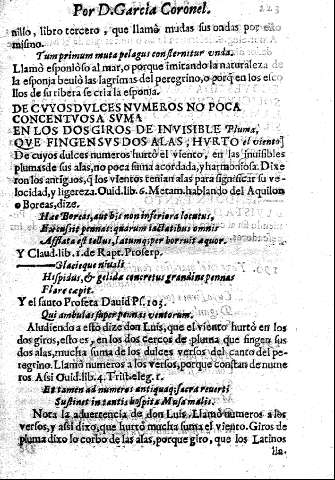 Por D. Garcia Coronel. 223
nilio, libro tercero, que llamò mudas sus ondas por esto
mismo.
Tum primum muta pelagus consternitur unda.
Llamò esponioso al mar, o porque imitando la naturaleza de
la esponja beuiò las lagrimas del peregrino, o porq̃ en los esco
llos de su ribera se cria la esponja.
DE CVYOS DVLCES NVMEROS NO POCA
CONCENTVOSA SVMA
EN LOS DOS GIROS DE INVISIBLE Pluma,
QVE FINGEN SVS DOS ALAS, HVRTO el viento]
De cuyos dulces numeros hurtò el viento, en las inuisibles
plumas de sus alas, no poca suma acordada, y harmoniosa. Dixe
ron los antiguos, q̃ los vientos tenian alas para significar su ve-
locidad, y ligereza. Ouid. lib. 6. Metam. hablando del Aquilon
o Boreas, dize.
Hæc Boreas, aut his non inferiora locutus,
Excussit pennas: quarum iactatibus omnis
Afflata est tellus, latumq; per horruit æquor.
Y Claud. lib. 1. de Rapt. Proserp.
Glacieque niuali
Hispidus, & gelida concretus grandine pennas
Flare cupit.
Y el santo Profeta Dauid Ps. 103.
Qui ambulas super pennas ventorum.
Aludiendo a esto dize don Luis, que el viento hurtò en los
dos giros, esto es, en los dos cercos de pluma que fingen sus
dos alas, mucha suma de los dulces versos del canto del pe-
regrino. Llamò numeros a los versos, porque constan de nume
ros Assi Ouid. lib. 4. Trist. eleg. 1.
Et tamen ad numeros antiquaq; sacra reuerti
Sustinet in tantis hospita Musa malis.
Nota la aduertencia de don Luis. Llamò numeros a los
versos, y assi dixo, que hurtò mucha suma el viento. Giros de
pluma dixo lo corbo de las alas, porque giro, que los Latinos
lla-